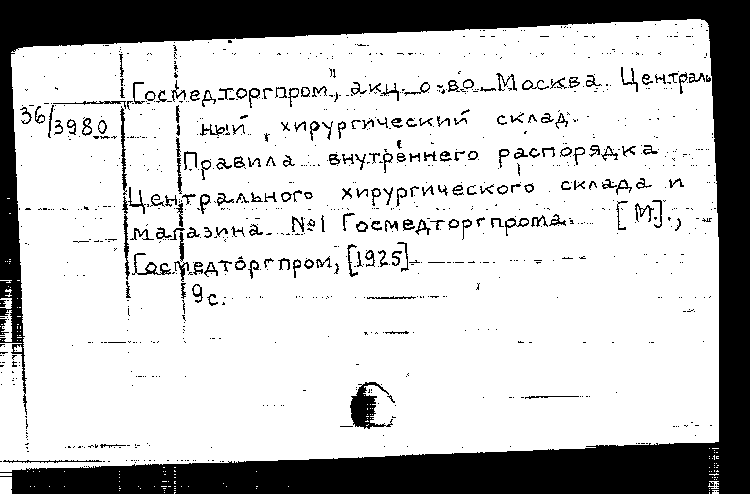 "Госмедторгпром", акц. о-во. Москва. Централь
36/3980
ный хирургический склад.
Правила внутреннего распорядка
Центрального хирургического склада и
магазина №1 Госмедторгпрома. [М].,
Госмедторгпром, [1925].
9с.